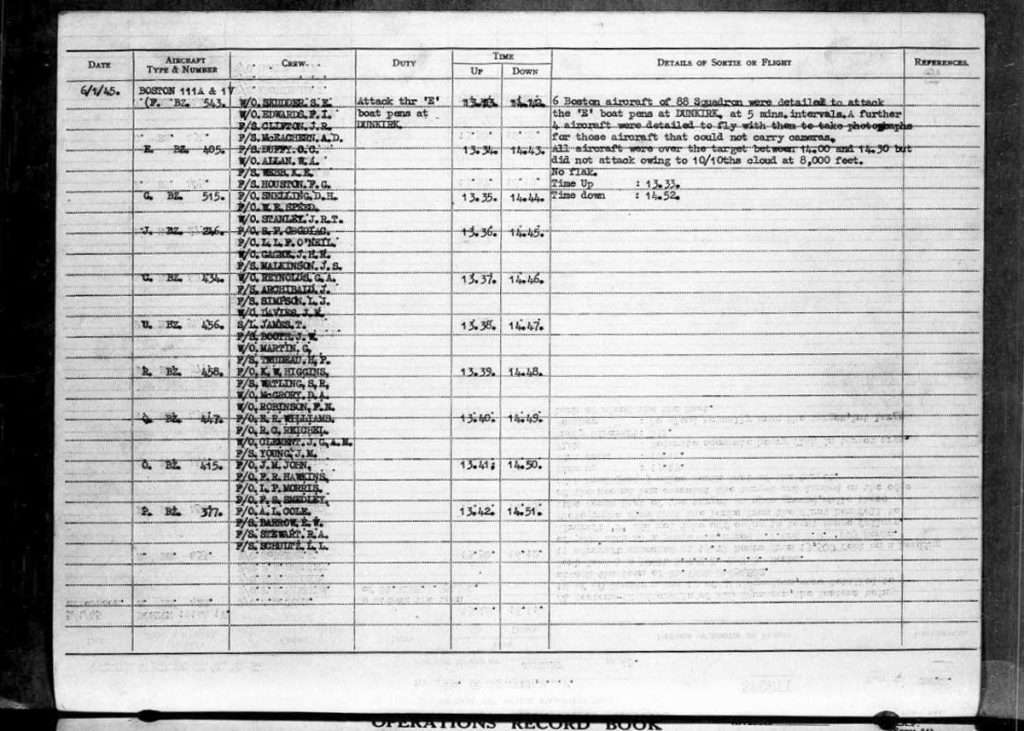 DATE AIRCRAFT TYPE & NUMBER CREW DUTY TIME UP DOWN DETAILS OF SORTIE OR FLIGHT REFERENCES
6/1/45. BOSTON 111A & 1V
(F. BZ. 543. W/O. SKUDDER, S.K. Attack thr 'E' 6 Boston aircraft of 88 Squadron were detailed to attack
W/O. EDWARDS, F.L. boat pens at the 'E' boat pens at DUNKIRK, at 5 mins. intervals. A further
F/S. CLIFTON, J.R. DUNKIRK. 4 aircraft were detailed to fly with them to take photographs
F/S. McEACHERN, A.D. for those aircraft that could not carry cameras.
E. BZ. 405. P/S. DUFFY, C.C. 13.34. 14.43. All aircraft were over the target between 14.00 and 14.30 but
W/O. ALLAN, W.A. did not attack owing to 10/10ths cloud at 8,000 feet.
F/S. WEBB, K.E. No flak.
F/S. HOUSTON, F.G. Time Up : 13.33.
G. BZ. 515. F/O. SNELLING, D.H. 13.35. 14.44. Time down : 14.52.
F/O. W.R. SPEED.
W/O. STANLEY, J.R.T.
J. BZ. 246. F/O. S.P. 13.36. 14.45.
F/O. L.L.F. O'NEIL.
W/O. GAGNE, J.H.N.
F/S. MALKINSON, J.S.
BZ. 434. W/O. REYNOLDS, G.A. 13.37. 14.46.
F/S. ARCHIBALD, J.
F/S. SIMPSON, L.J.
W/O. DAVIES, J.M.
U. BZ. 456. S/L. JAMES, T. 13.38. 14.47.
F/S. BOOTH, J.W.
W/O. MARTIN, G.
F/S. TRUDEAU, H.P.
R. BZ. 458. F/O. K.W. HIGGINS. 13.39. 14.48.
F/S. WATLING, S.R.
W/O. McGRORY, D.A.
W/O. ROBINSON, F.N.
Q. BZ. 447. F/O. E.R. WILLIAMS. 13.40. 14.49.
F/O. R.G. REICHEL.
W/O. CLEMENT, J.G.A.M.
F/S. YOUNG, J.M.
O. BZ. 415. F/O. J.M. JOHN. 13.41; 14.50.
F/O. F.R. HAWKINS.
F/O. L.P. MORRIS.
F/O. F.S. SMEDLEY.
P. BZ. 377. F/O. A.L. COLE. 13.42. 14.51.
F/S. BARROW, E.W.
F/S. STEWART, R.A.
F/S. SCHULTZ, L.L.
OPERATIONS RECORD BOOK